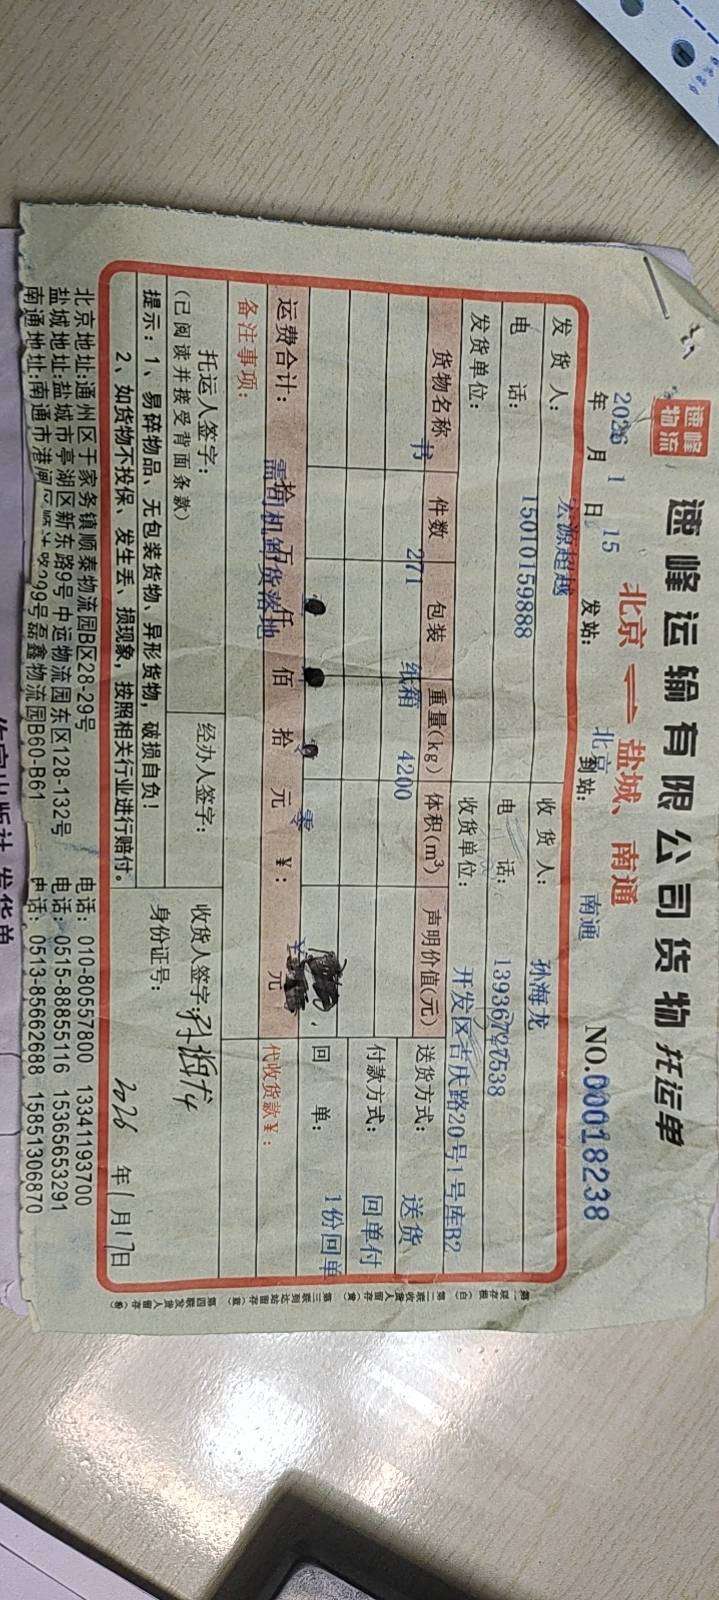 速峰物流
速峰运输有限公司货物托运单
北京 ⇌ 盐城、南通
NO.00018238
2026年 1月 15日 发站：北京 到站：南通
发货人：宏源超越 收货人：孙海龙
电话：15010159888 电话：13936727538
发货单位： 收货单位：开发区吉庆路20号1号库B2
货物名称 件数 包装 重量(kg) 体积(m³) 声明价值(元) 送货方式：送货
书 271 纸箱 4200
付款方式：回单付
回单：1份回单
运费合计： 拾 万 仟 佰 拾 元 零 ¥： 元 代收货款¥：
备注事项：需司机卸货落地
托运人签字：
(已阅读并接受背面条款)
经办人签字：
收货人签字：孙海龙
身份证号：
2026年1月17日
提示：1、易碎物品、无包装货物、异形货物，破损自负！
2、如货物不投保、发生丢、损现象，按照相关行业进行赔付。
北京地址：通州区于家务镇顺泰物流园B区28-29号 电话：010-80557800 13341193700
盐城地址：盐城市亭湖区新东路9号 中运物流园东区128-132号 电话：0515-88855116 15365653291
南通地址：南通市港闸区 299号磊鑫物流园B60-B61 电话：0513-85662688 15851306870
第一联存根（白） 第二联收货人留存（黄） 第三联到达站留存（蓝） 第四联发货人留存
出版社 发货单